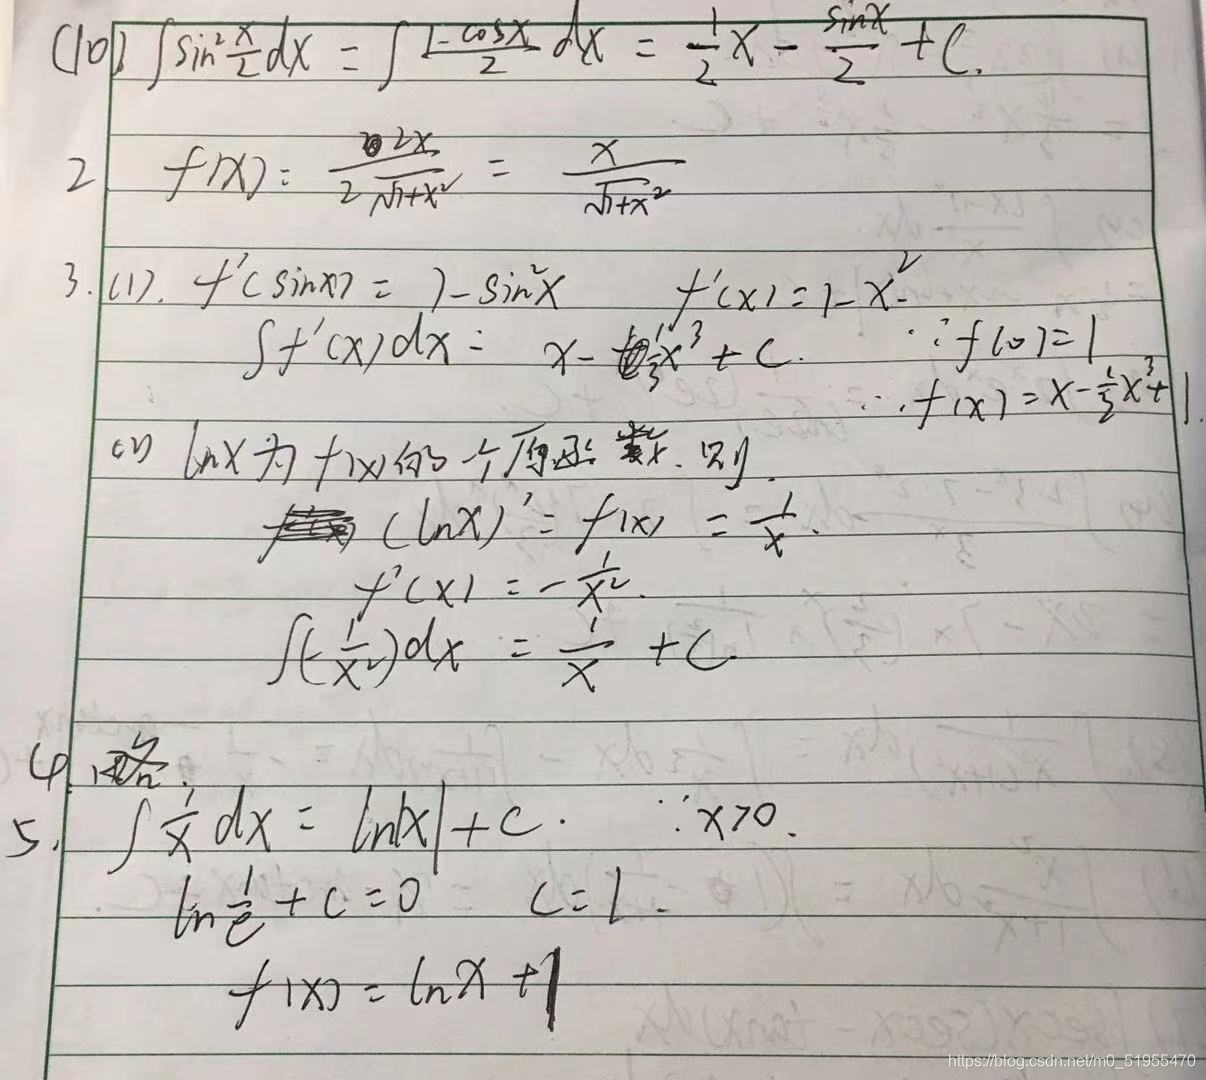 (10) ∫sin²x/2 dx = ∫(1-cosx)/2 dx = 1/2 x - sinx/2 + C.
2 f(x) = 2x/(2√(1+x²)) = x/√(1+x²)
3. (1). f'(sinx) = 1-sin²x f'(x) = 1-x².
∫f'(x)dx = x - 1/3 x³ + C. ∵ f(0)=1
∴ f(x) = x - 1/3 x³ + 1.
(2) lnx为f(x)的个原函数. 则.
(lnx)' = f(x) = 1/x.
f'(x) = -1/x².
∫(-1/x²)dx = 1/x + C.
4. 略.
5. ∫1/x dx = ln|x| + C. ∵ x>0.
ln 1/e + C = 0 C = 1.
f(x) = lnx + 1
https://blog.csdn.net/m0_51955470